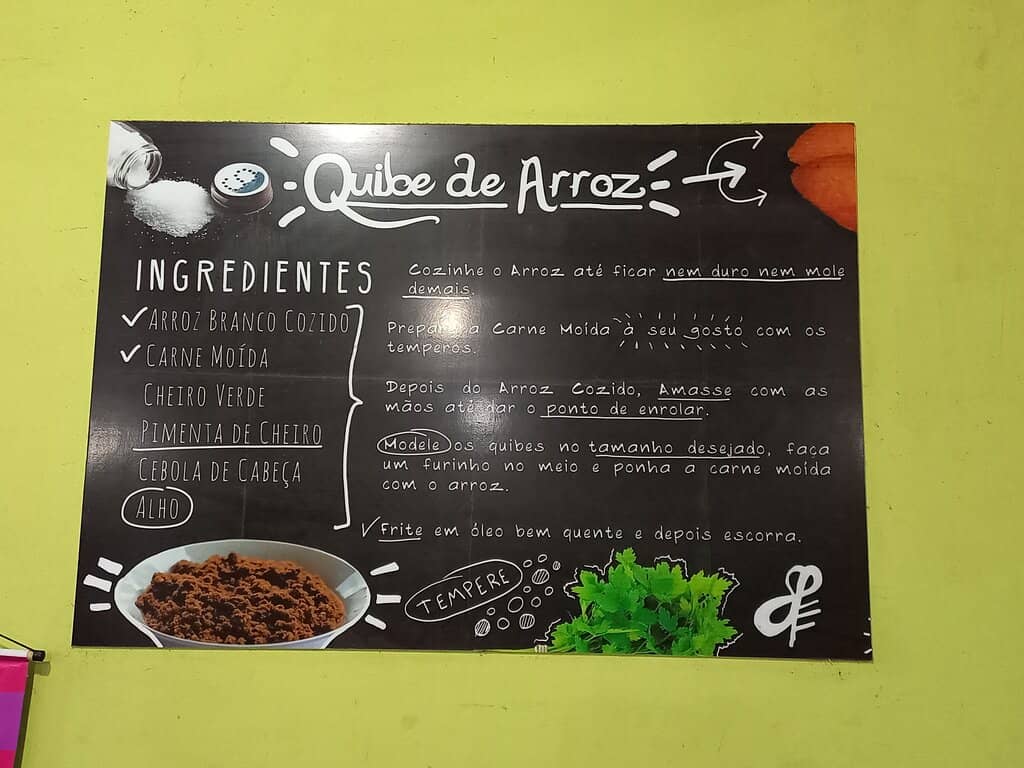 Quibe de Arroz
INGREDIENTES
ARROZ BRANCO COZIDO
CARNE MOÍDA
CHEIRO VERDE
PIMENTA DE CHEIRO
CEBOLA DE CABEÇA
ALHO
Cozinhe o Arroz até ficar nem duro nem mole
demais.
Prepare a Carne Moída à seu gosto com os
temperos.
Depois do Arroz Cozido, Amasse com as
mãos até dar o ponto de enrolar.
Modele os quibes no tamanho desejado, faça
um furinho no meio e ponha a carne moida
com o arroz.
Frite em óleo bem quente e depois escorra.
TEMPERE